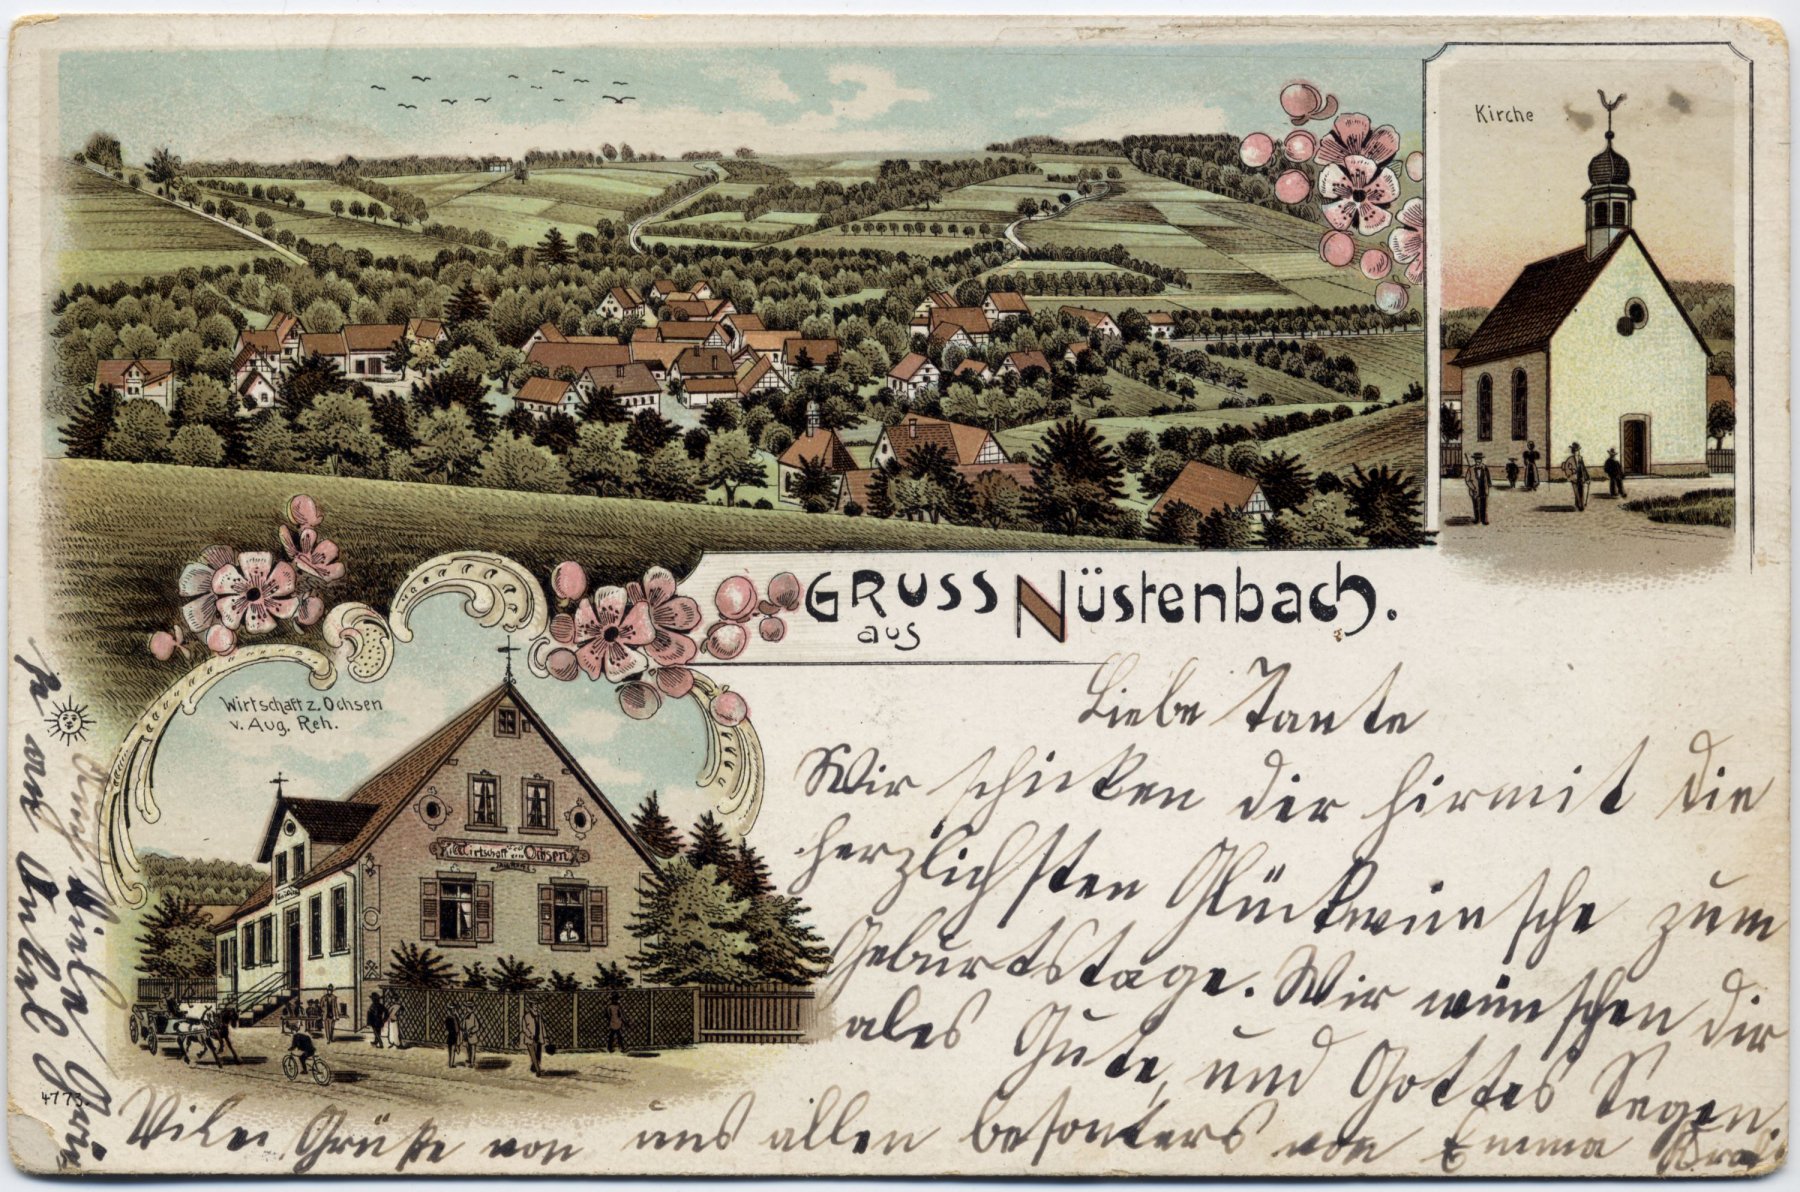 Kirche
GRUSS
aus
Nüstenbach.
Wirtschaft z. Ochsen
v. Aug. Reh.
Wirtschaft zum Ochsen
4773.
Liebe Tante
Wir schicken dir hirmit die
herzlichsten Glückwünsche zum
Geburtstage. Wir wünschen dir
ales Gute, und Gottes Segen.
Viele Grüße von uns allen besonters von Emma
Viele